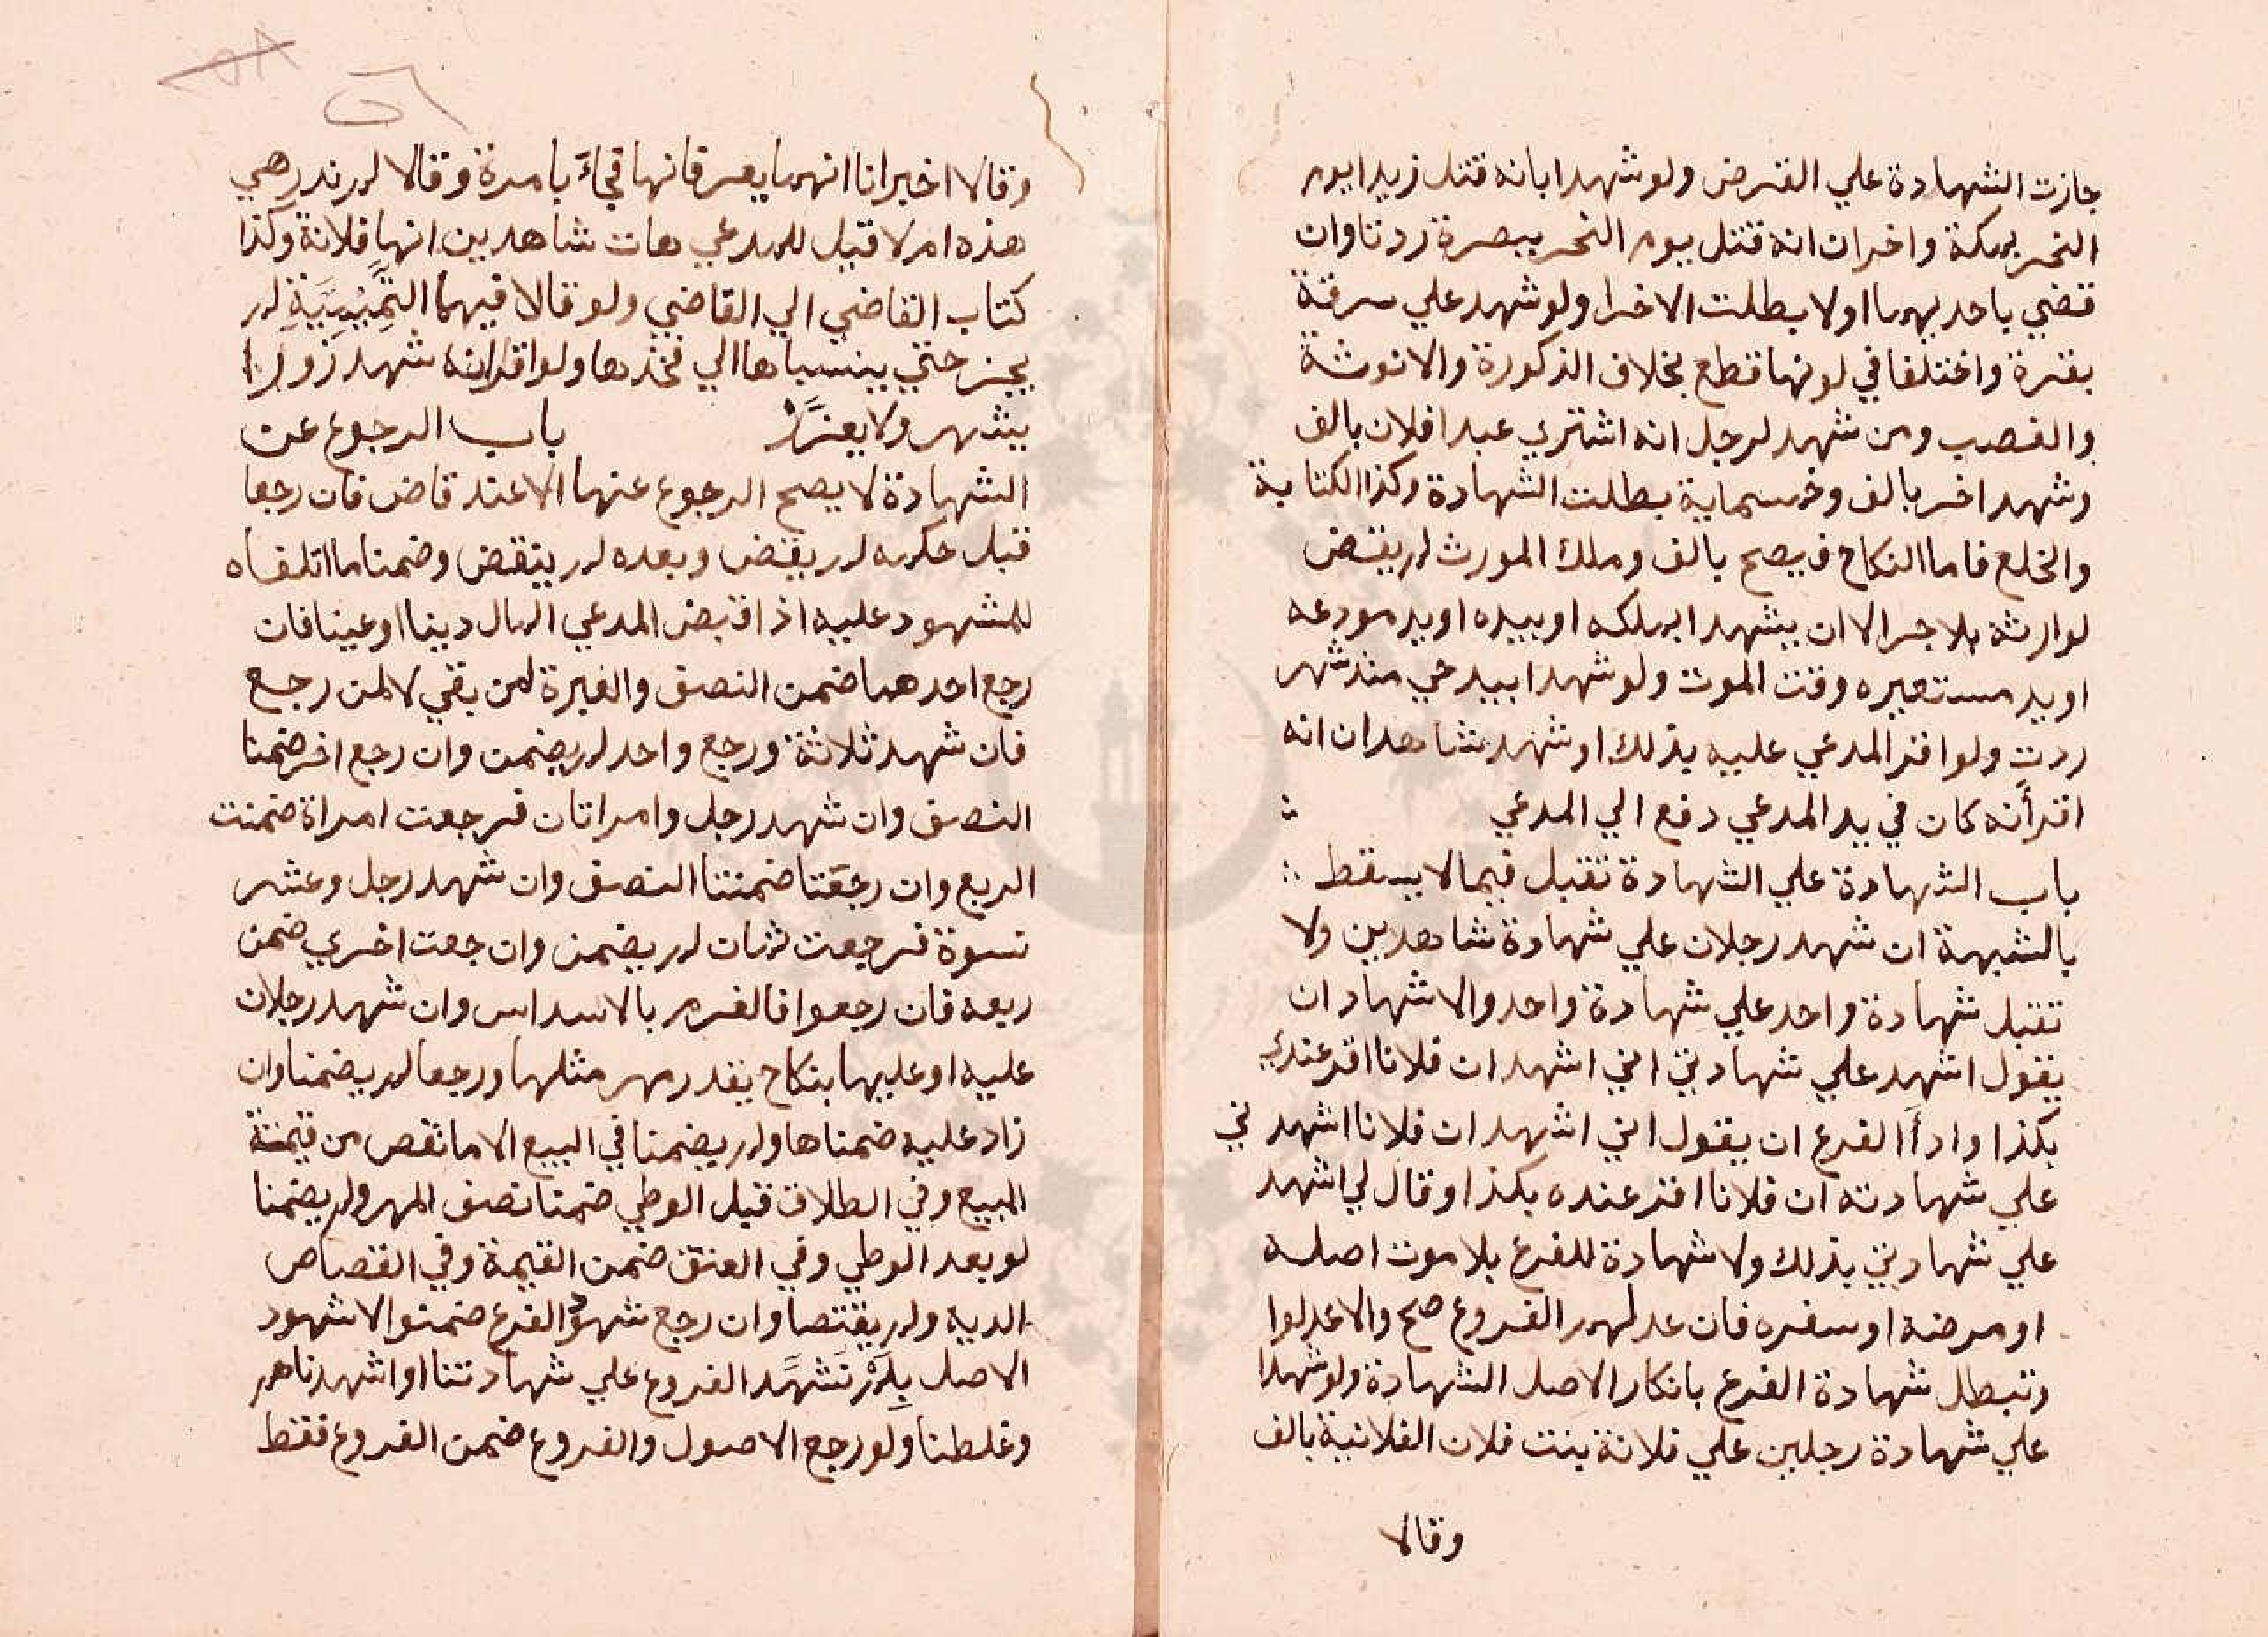 جازت الشهادة علي القرض ولو شهدا بانه قتل زيدا يوم
النحر بمكة واخران انه قتل يوم النحر ببصرة ردتا وان
قضي باحديهما اولا بطلت الاخرا ولو شهد علي سرقة
بقرة واختلفا في لونها قطع بخلاف الذكورة والانوثة
والغصب ومن شهد لرجل انه اشتري عبدا فلان بالف
وشهد اخر بالف وخمسماية بطلت الشهادة وكذا الكتابة
والخلع فاما النكاح فيصح بالف وملك المورث لم يقض
لوارثه بلا جر الا ان يشهدا بملكه او بيده او يد مودعه
او يد مستعيره وقت الموت ولو شهدا بيد حي منذ شهر
ردت ولو اقر المدعي عليه بذلك او شهد شاهدان انه
اقر أنه كان في يد المدعي دفع الي المدعي
باب الشهادة علي الشهادة تقبل فيما لا يسقط
بالشبهة ان شهد رجلان علي شهادة شاهدين ولا
تقبل شهادة واحد علي شهادة واحد والاشهاد ان
يقول اشهد علي شهادتي اني اشهد ان فلانا اقر عندي
بكذا وادأ الفرع ان يقول اني اشهد ان فلانا اشهدني
علي شهادته ان فلانا اقر عنده بكذا وقال لي اشهد
علي شهادتي بذلك ولا شهادة للفرع بلا موت اصله
او مرضه او سفره فان عدلهم الفروع صح والا عدلوا
وتبطل شهادة الفرع بانكار الاصل الشهادة ولو شهدا
علي شهادة رجلين علي فلانة بنت فلان الفلانية بالف
وقالا
٥٨
٥٦
وقالا اخبرانا انهما يعرفانها فجاءَ بامرة وقالا لم ندر هي
هذه ام لا قيل للمدعي هات شاهدين انها فلانة وكذا
كتاب القاضي الي القاضي ولو قالا فيهما التَّمِيْمِيَّةِ لم
يجز حتي ينسباها الي فخذها ولو اقر انه شهد زورا
يشهر ولا يعزَّر باب الرجوع عن
الشهادة لا يصح الرجوع عنها الا عند قاض فان رجعا
قبل حكمه لم يقض وبعده لم ينقض وضمنا ما اتلفاه
للمشهود عليه اذا قبض المدعي المال دينا او عينا فان
رجع احدهما ضمن النصف والغبرة لمن بقي لا لمن رجع
فان شهد ثلاثة ورجع واحد لم يضمن وان رجع اخر ضمنا
النصف وان شهد رجل وامراتان فرجعت امراة ضمنت
الربع وان رجعَتا ضمنتا النصف وان شهد رجل وعشر
نسوة فرجعت ثمان لم يضمن وان جعت اخري ضمن
ربعه فان رجعوا فالغرم بالاسداس وان شهد رجلان
عليه او عليها بنكاح بقدر مهر مثلها ورجعا لم يضمنا وان
زاد عليه ضمناها ولم يضمنا في البيع الا ما نقص من قيمتة
المبيع وفي الطلاق قبل الوطي ضمنا نصف المهر ولم يضمنا
لو بعد الوطي وفي العتق ضمن القيمة وفي القصاص
الدية ولم يقتصا وان رجع شهود الفرع ضمنوا لا شهود
الاصل بِلَمْ نَشهَد الفروع علي شهادتنا او اشهدناهم
وغلطنا ولو رجع الاصول والفروع ضمن الفروع فقط